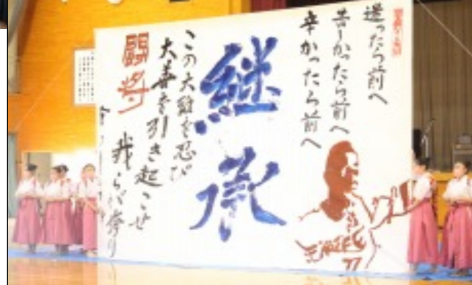 迷ったら前へ
苦しかったら前へ
辛かったら前へ
継承
この大難を忍び
大喜を引き起こせ
闘将
我らが誇り
77